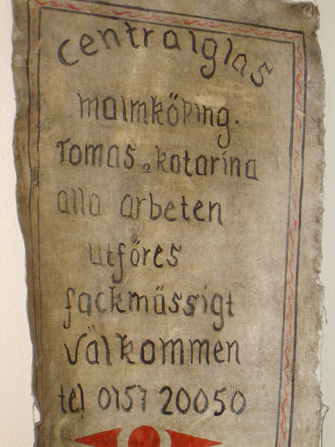 centralglas
malmköping.
Tomas o katarina
alla arbeten
utföres
fackmässigt
välkommen
tel 0157 20050